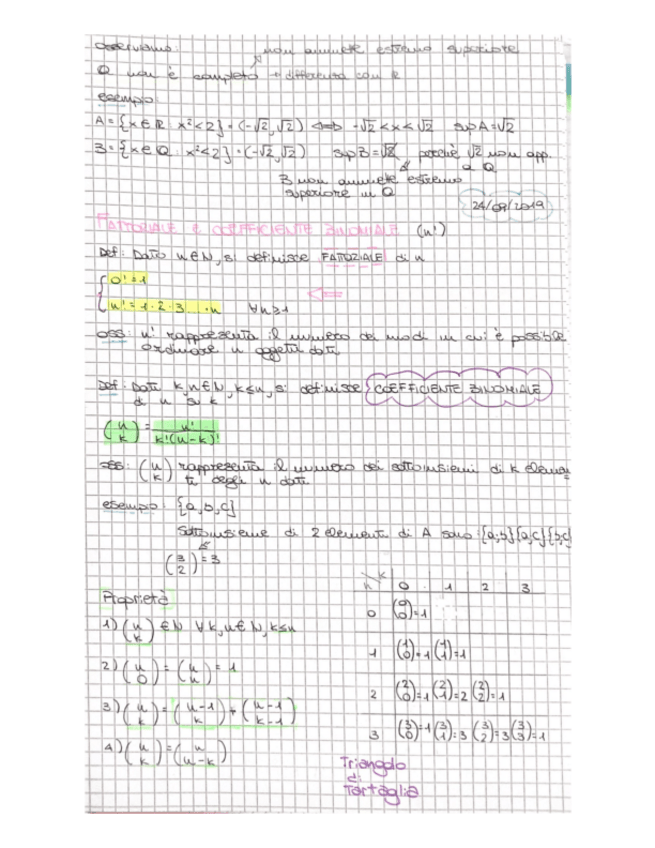 osserviamo: non ammette estremo superiore
Q non è completo → differenza con R
esempio:
A = {x ∈ R : x² < 2} = (-√2, √2) ⟺ -√2 < x < √2 sup A = √2
B = {x ∈ Q : x² < 2} = (-√2, √2) sup B = √2 perché √2 non app. a Q
B non ammette estremo
superiore in Q
24/09/2019
FATTORIALE E COEFFICIENTE BINOMIALE (n!)
Def: Dato n ∈ N, si definisce FATTORIALE di n
{ 0! = 1
n! = 1·2·3 ... ·n ∀n ≥ 1
⇐
oss: n! rappresenta il numero dei modi in cui è possibile
ordinare n oggetti dati
Def: Dati k, n ∈ N, k ≤ n, si definisce COEFFICIENTE BINOMIALE
di n su k
(n k) = n! / k!(n-k)!
oss: (n k) rappresenta il numero dei sottoinsiemi di k elemen
ti degli n dati
esempio: {a, b, c}
Sottoinsieme di 2 elementi di A sono: {a;b} {a,c} {b,c}
(3 2) = 3
Proprietà
1) (n k) ∈ N ∀ k, n ∈ N, k ≤ n
2) (n 0) = (n n) = 1
3) (n k) = (n-1 k) + (n-1 k-1)
4) (n k) = (n n-k)
n \ k 0 1 2 3
0 (0 0) = 1
1 (1 0) = 1 (1 1) = 1
2 (2 0) = 1 (2 1) = 2 (2 2) = 1
3 (3 0) = 1 (3 1) = 3 (3 2) = 3 (3 3) = 1
Triangolo
di
Tartaglia